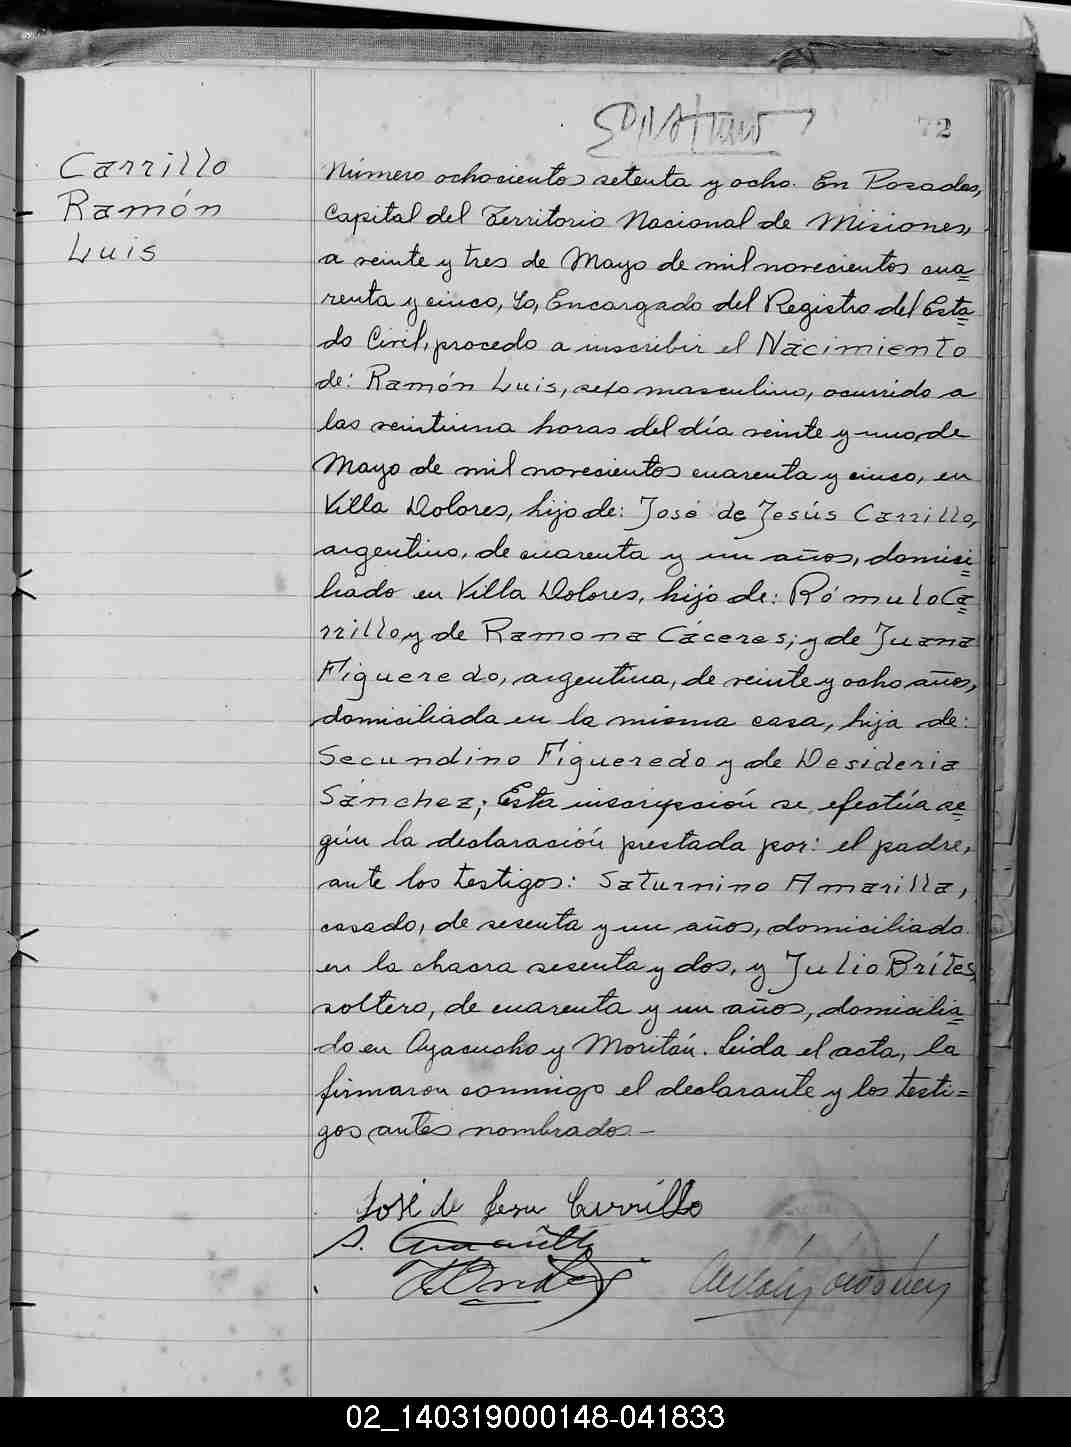 72
Carrillo
Ramón
Luis
Número ochocientos setenta y ocho. En Posadas,
Capital del Territorio Nacional de Misiones,
a veinte y tres de Mayo de mil novecientos cua=
renta y cinco, Yo, Encargado del Registro del Esta=
do Civil, procedo a inscribir el Nacimiento
de: Ramón Luis, sexo masculino, ocurrido a
las veintiuna horas del día veinte y uno, de
Mayo de mil novecientos cuarenta y cinco, en
Villa Dolores, hijo de: José de Jesús Carrillo,
argentino, de cuarenta y un años, domici=
liado en Villa Dolores, hijo de: Rómulo Ca=
rrillo, y de Ramona Cáceres; y de Juana
Figueredo, argentina, de veinte y ocho años,
domiciliada en la misma casa, hija de:
Secundino Figueredo y de Desideria
Sánchez; Esta inscripción se efectúa se=
gún la declaración prestada por: el padre,
ante los testigos: Saturnino Amarilla,
casado, de sesenta y un años, domiciliado
en la chacra sesenta y dos, y Julio Brítes,
soltero, de cuarenta y un años, domicilia=
do en Ayacucho y Moritán. Leida el acta, la
firmaron conmigo el declarante y los testi=
gos antes nombrados.—
José de Jesu Carrillo
S. Amarilla
02_140319000148-041833